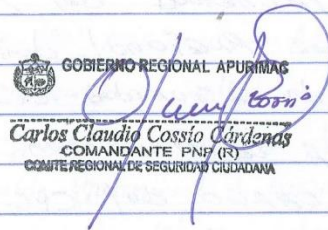 GOBIERNO REGIONAL APURIMAC
Carlos Claudio Cossío Cárdenas
COMANDANTE PNP (R)
COMITE REGIONAL DE SEGURIDAD CIUDADANA